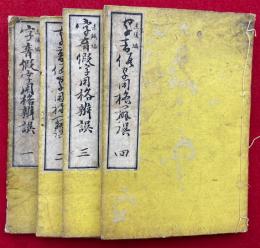 字音假字用格辨誤 四
字音假字用格辨誤 三
字音假字用格辨誤 二
字音假字用格辨誤 一